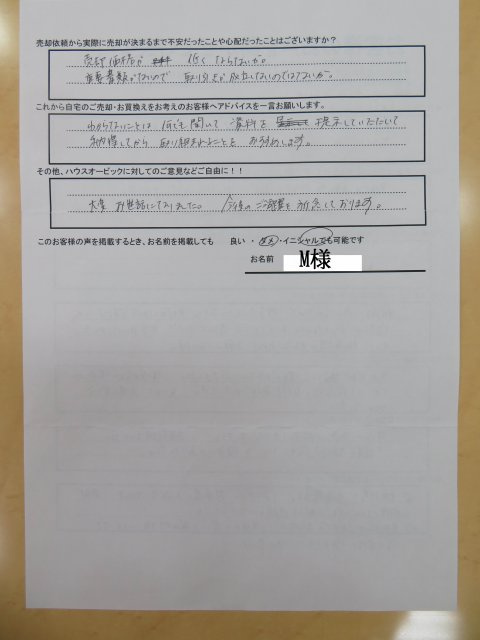 売却依頼から実際に売却が決まるまで不安だったことや心配だったことはございますか？
売却価格が 低くならないか。
重要書類がないので 取り引きが成立しないのではないか。
これから自宅のご売却・お買換えをお考えのお客様へアドバイスを一言お願いします。
わからないことは 何でも聞いて 資料を 提示していただいて
納得してから 取り組まれることを おすすめします。
その他、ハウスオービックに対してのご意見などご自由に！！
大変 お世話になりました。 今後の ご発展を 祈念しております。
このお客様の声を掲載するとき、お名前を掲載しても 良い ・ ダメ ・イニシャルでも可能です
お名前 M様